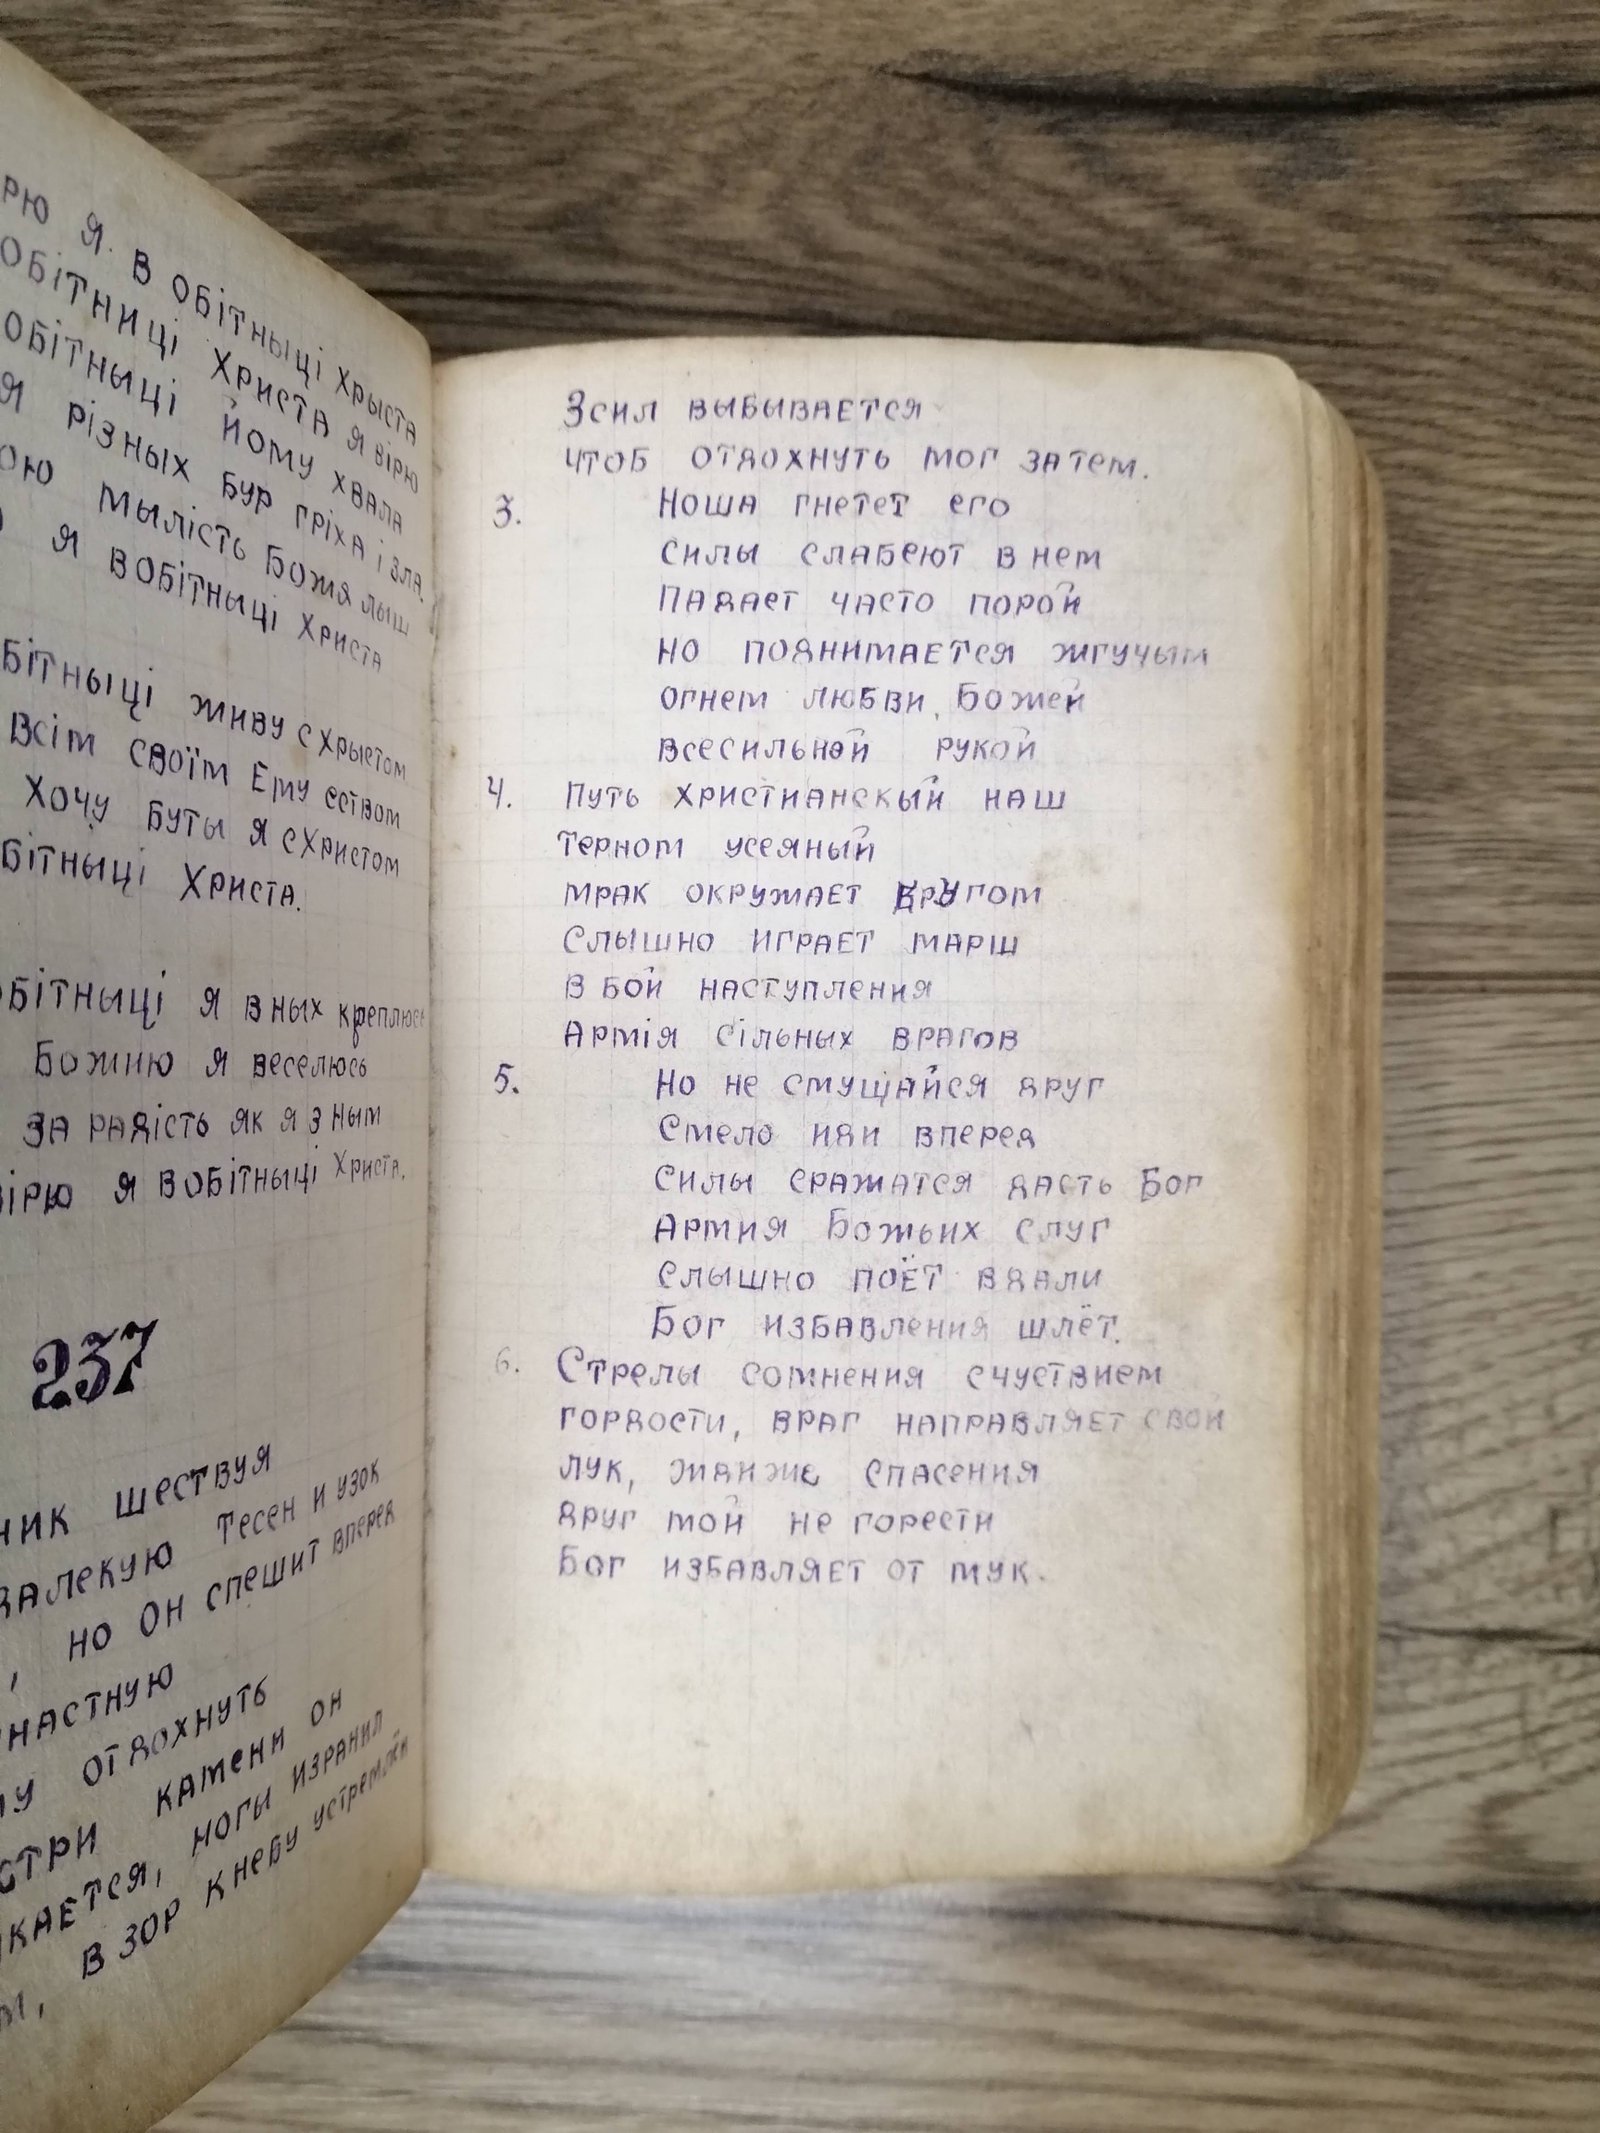 рю я. В обітныці Хрыста
обітниці Христа я вірю
обітныці йому хвала
я різных бур гріха і зла
ою мылість Божя лыш
я вобітныці Христа
бітныці живу сХрыстом
Всім своїм Ему єством
Хочу буты я сХристом
бітныці Христа.
обітныці я вных креплюсь
Божию я веселюсь
за радість як я зным
вірю я вобітныці Христа.
237
ник шествуя
далекую тесен и узок
, но он спешит вперед
настную
му отдохнуть
стри камени он
кается, ногы изранил
м, взор кнебу устремлён
Зсил выбывается
чтоб отдохнуть мог затем.
3. Ноша гнетет его
силы слабеют в нем
Падает часто порой
но поднимается жгучым
огнем любви, Божей
всесильной рукой
4. Путь христианскый наш
терном усеяный
мрак окружает кругом
Слышно играет марш
В бой наступления
Армія сільных врагов
5. Но не смущайся друг
Смело иди вперед
Силы сражатся дасть Бог
Армия Божьих слуг
слышно поёт вдали
Бог избавления шлёт.
6. Стрелы сомнения счуствием
гордости, враг направляет свой
лук, жди же спасения
друг мой не горести
Бог избавляет от мук.